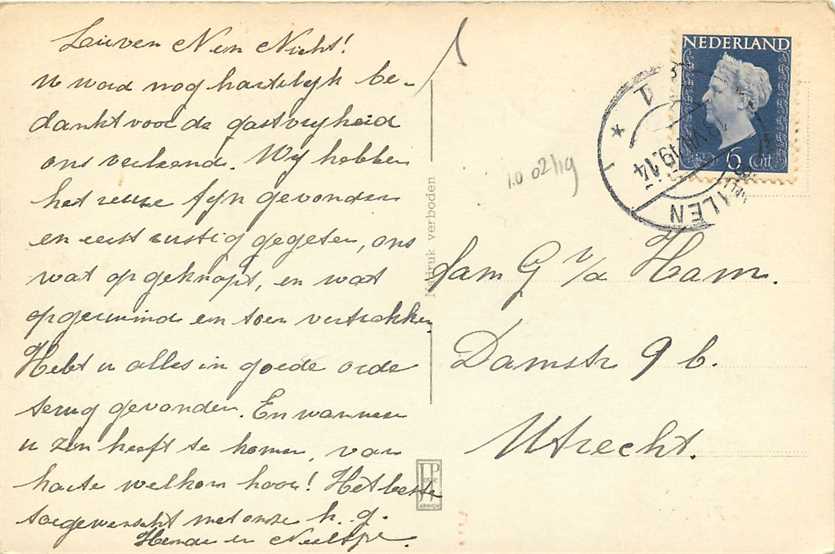 Lieve N en Nicht!
U word nog hartelijk be-
dankt voor de gastvrijheid
ons verleend. Wij hebben
het reuze fijn gevonden
en eerst rustig gegeten, ons
wat opgeknapt, en wat
opgeruimd en toen vertrokken
Hebt u alles in goede orde
terug gevonden. En wanneer
u zin heeft te komen, van
harte welkom hoor! Het beste
toegewenscht met onze h. g.
Hende en
Nadruk verboden
10 02/19
NEDERLAND
6 Cnt
ALEN
Fam G v/d Ham.
Damstr 9 b.
Utrecht.
JP